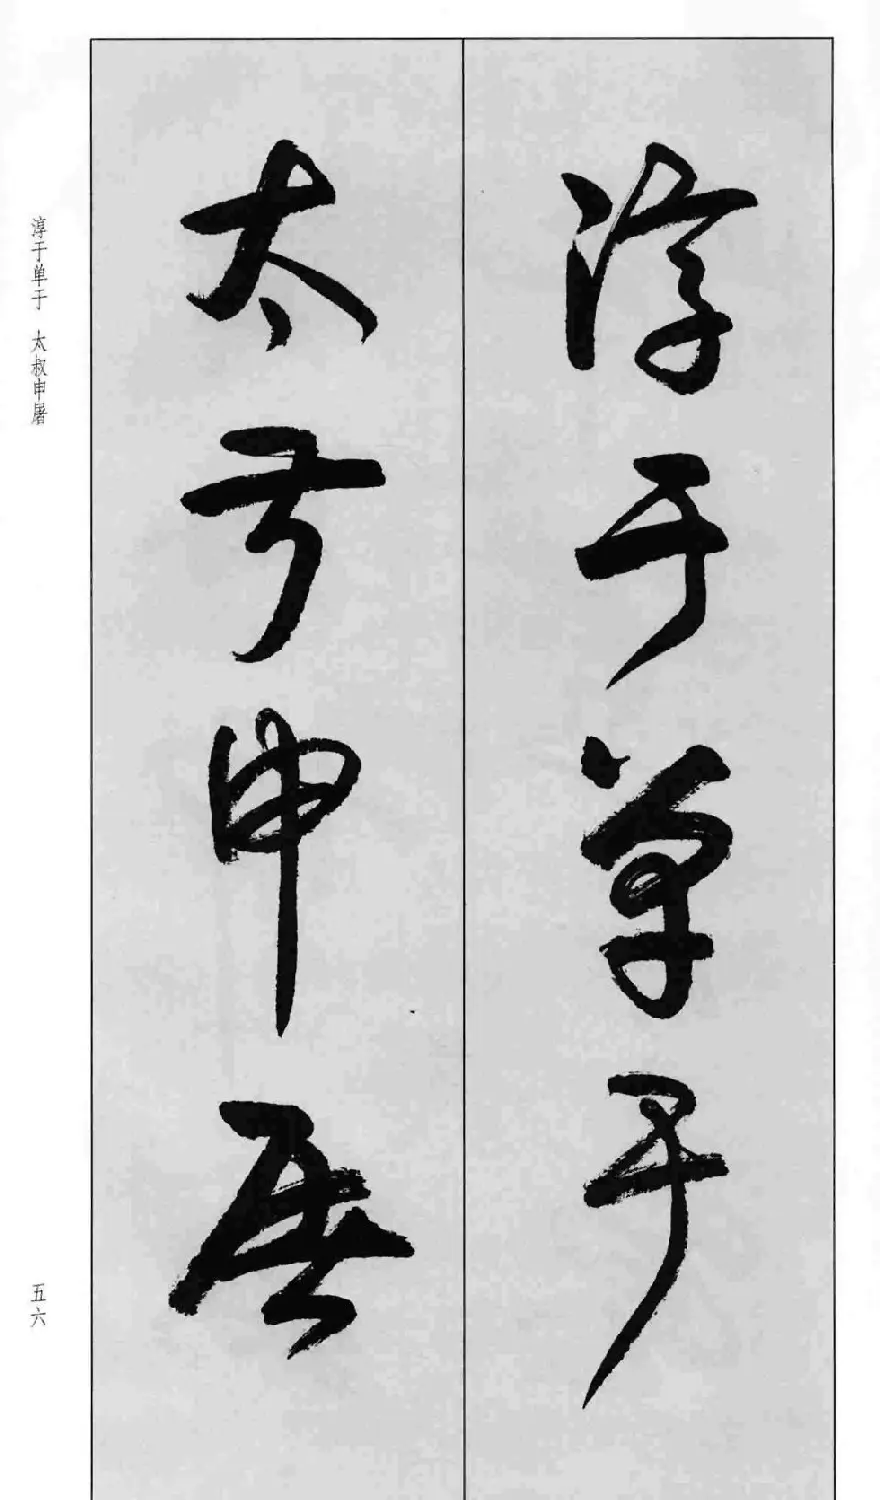 淳于单于
太叔申屠
淳于单于 太叔申屠
五六